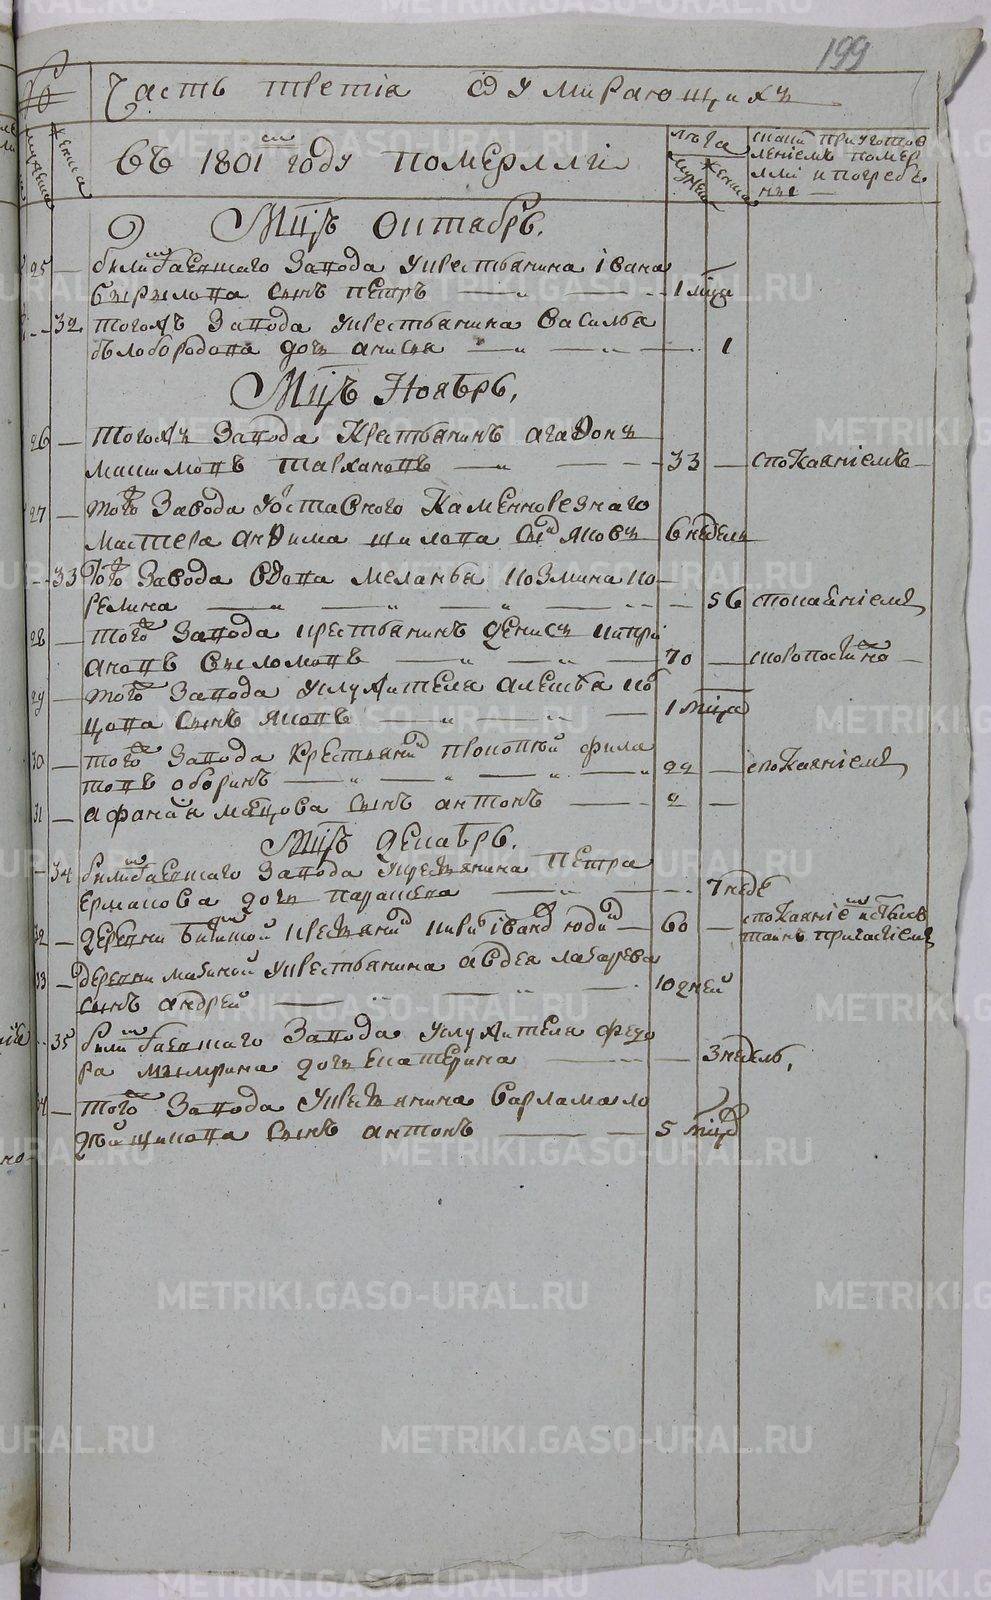 199
Часть третіа о умирающихъ
мужеска
женска
въ 1801 м году померлli
лѣта
мужеск
женска
скаким приуготов
леніемъ помер
лли и погребе
ны
Мцъ Октябрь.
25 — билимбаевшаго завода укрестьянина івана
сынъ петръ — 1 мца
32 тогожъ завода укрестьянина василья
бѣлобородова дочь анисья — 1
Мцъ Ноябрь,
26 — тогожъ завода крестьянинъ агафонъ
тархановъ — 33 — спокаяніемъ
27 — того завода уоставного каменнорезнаго
мастера анфима шилова сынъ яковъ 6 недель
33 того завода вдова меланья козмина ко
релина — 56 спокаеніемъ
28 — того завода крестьянинъ денисъ кипри
ановъ — 70 — скоропостижно
29 — того завода услужителя алексѣя ко
цова сынъ яковъ — 1 мца
30 — того завода крестьянинъ прокопей фила
товъ оборинъ — 22 — спокаяніемъ
31 — афанасья сынъ антонъ — 2 —
Мцъ декабрь.
34 билимбаевшаго завода укрестьянина петра
ермакова дочь парасковья — 7 неде
32 — деревни крестьянинъ — 60 — спокаяніемъ исвятыхъ
таинъ причастіемъ
33 — деревни макиной укрестьянина авдея лазарева
сынъ андрей — 10 дней
35 билимбаевшаго завода услужителя федо
ра дочь екатерина — 3 недель,
34 — того завода укрестьянина варлама ло
сынъ антонъ — 5 мцъ
METRIKI.GASO-URAL.RU